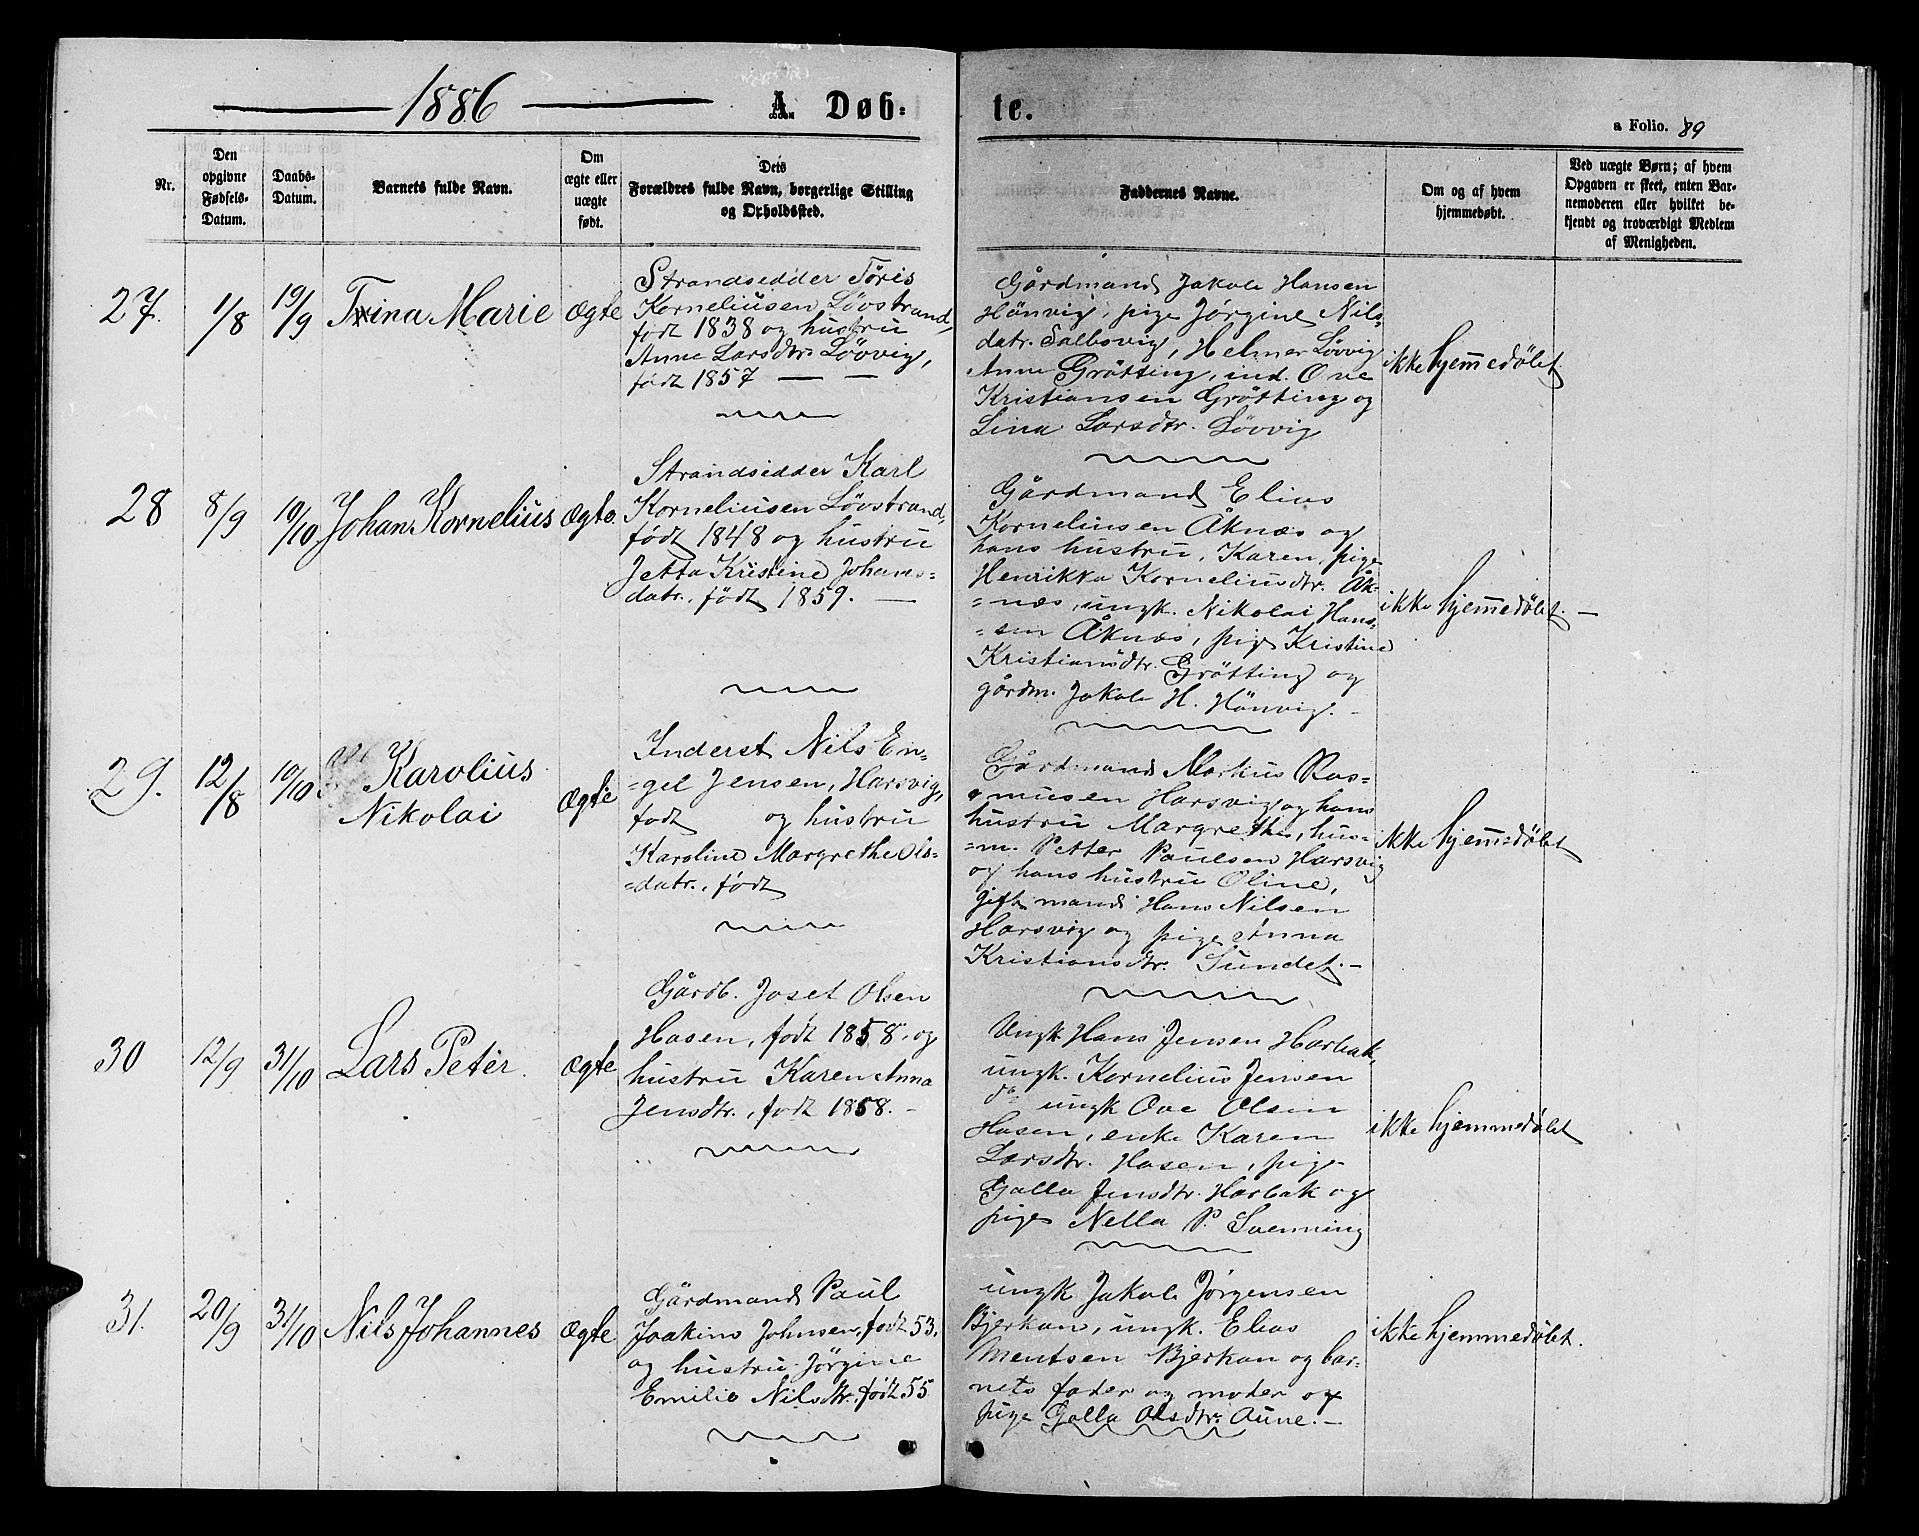 1886
A. Døb-
te.
a Folio. 89
Nr.
Den opgivne Fødsels-Datum.
Daabs-Datum.
Barnets fulde Navn.
Om ægte eller uægte født.
Dets Forældres fulde Navn, borgerlige Stilling og Opholdssted.
Faddernes Navne.
Om og af hvem hjemmedøbt.
Ved uægte Børn; af hvem Opgaven er skeet, enten Barnemoderen eller hvilket bekjendt og troværdigt Medlem af Menigheden.
27.
1/8
19/9
Trina Marie
Ægte
Strandsidder Töris
Korneliusen Løvstrand,
født 1838 og hustru
Anne Larsdtr. Løvvig,
født 1857 — —
Gårdmand Jakob Hansen
Hönvig, pige Jørgine Nils-
datr. Salbovig, Helmer Løvvig
Anne Grötting, ind. Ove
Kristiansen Grötting og
Lina Larsdtr. Løvvig
ikke hjemmedøbt
28
8/9
10/10
Johan Kornelius
Ægte.
Strandsidder Karl
Korneliusen Løvstrand,
født 1848 og hustru
Jetta Kristine Johans-
datr., født 1859. —
Gårdmand Elias
Korneliusen Åknæs og
hans hustru, Karen, pige
Henrikka Korneliusdtr. Åk-
=næs, ungk. Nikolai Hans-
=sen Åknæs, pige Kristine
Kristiansdtr. Grötting og
gårdm. Jakob H. Hönvig. -
ikke hjemmedøbt. —
29.
12/8
10/10
Karolius
Nikolai
Ægte
Inderst Nils En-
=gel Jensen, Harsvig,
født og hustru
Karoline Margrethe Ols-
=datr., født
Gårdmand Markus Ras-
=musen Harsvig og hans
hustru Margrethe, hus-
=m. Petter Paulsen Harsvig
og hans hustru Oline,
gift mand Hans Nilsen
Harsvig og pige Anna
Kristiansdtr. Sundet. -
ikke hjemmedøbt
30
12/9
31/10
Lars Peter.
Ægte
Gårdb. Joset Olsen
Hasen, født 1858, og
hustru Karen Anna
Jensdtr., født 1858. -
Ungk. Hans Jensen Harbak,
ungk. Kornelius Jensen
do ungk Ove Olsen
Hasen, enke Karen
Larsdtr. Hasen, pige
Galla Jensdtr. Harbak og
pige Nella P. Svenning
ikke hjemmedøbt
31.
20/9
31/10
Nils Johannes
Ægte
Gårdmand Paul
Joakim Johnsen, født 53,
og hustru Jörgine
Emilie Nilsdtr. født 55
ungk Jakob Jørgensen
Bjerkan, ungk. Elias
Mentsen Bjerkan og bar-
nets fader og moder og
pige Galla Olsdtr. Aune. -
ikke hjemmedøbt.